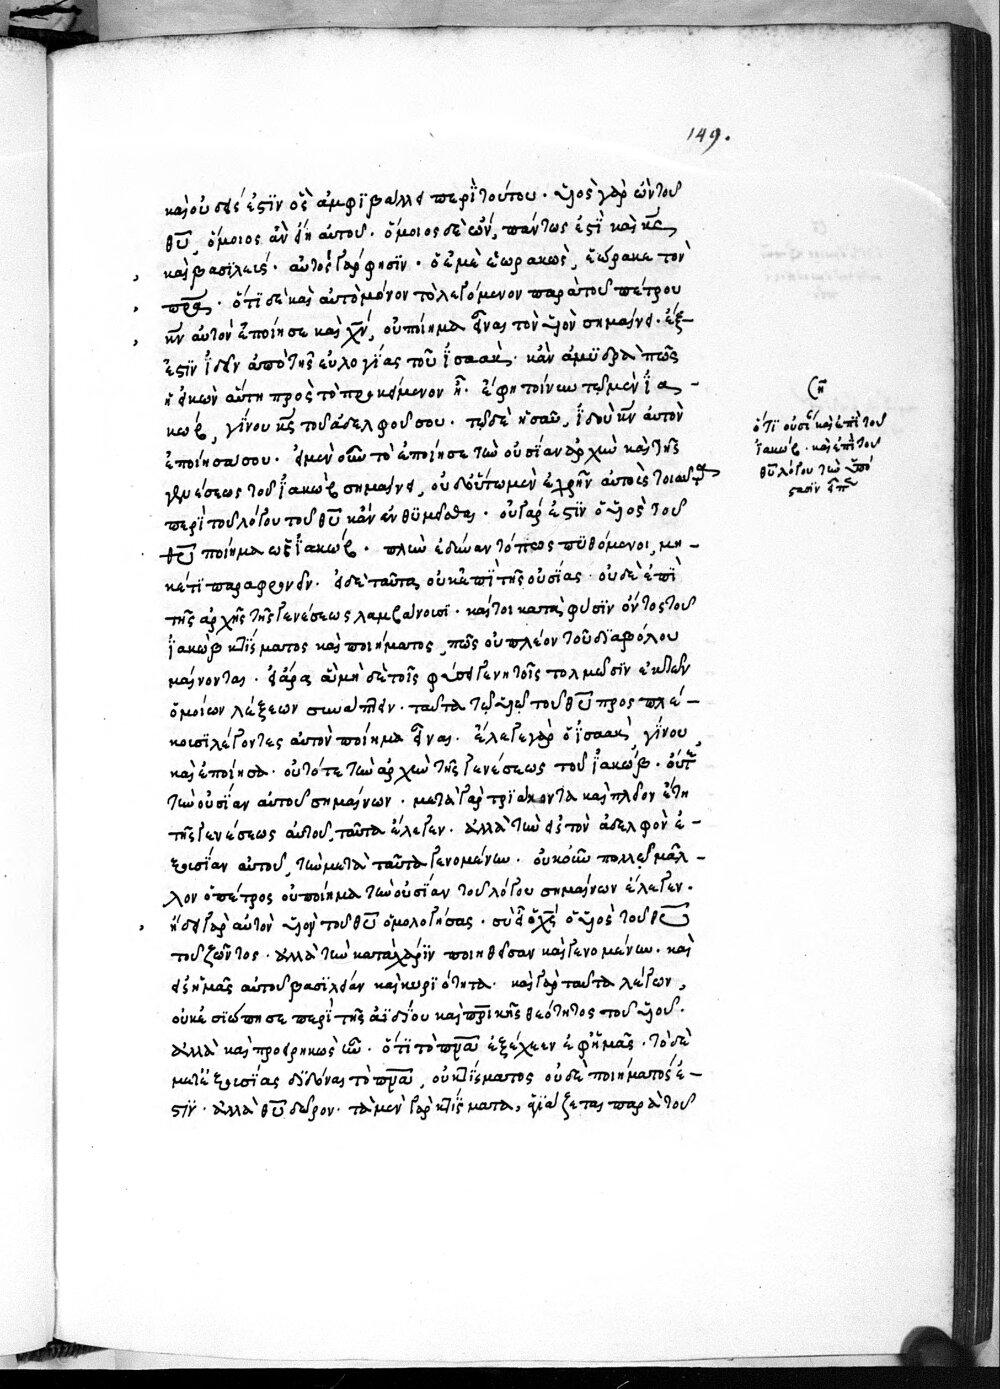 149.
καὶ οὐδείς ἐστὶν ὃς ἀμφιβάλλει περὶ τούτου. υἱὸς γὰρ ὢν τοῦ
θ͞υ, ὅμοιος ἂν εἴη αὐτοῦ. ὅμοιος δὲ ὢν, πάντως ἐστὶ καὶ κ͞ς
καὶ βασιλεύς. αὐτὸς γάρ φησιν. ὁ ἐμὲ ἑωρακὼς, ἑώρακε τὸν
π͞ρα. ὅτι δὲ καὶ αὐτὸ μόνον τὸ λεγόμενον παρὰ τοῦ πέτρου
κ͞ν αὐτὸν ἐποίησε καὶ χ͞ν, οὐ ποίημα εἶναι τὸν υἱὸν σημαίνει. ἔξ-
εστιν ἰδεῖν ἀπὸ τῆς εὐλογίας τοῦ ἰσαάκ. κἂν ἀμυδρά πως
ἡ εἰκὼν αὕτη πρὸς τὸ προκείμενον ᾖ. ἔφη τοίνυν τῷ μὲν ἰα-
κώβ, γίνου κ͞ς τοῦ ἀδελφοῦ σου. τῷ δὲ ἠσαῦ, ἰδοὺ κ͞ν αὐτὸν
ἐποίησά σου. εἰ μὲν οὖν τὸ ἐποίησε τὴν οὐσίαν ἀρχὴν καὶ τῆς
γενέσεως τοῦ ἰακὼβ σημαίνει, οὐδ' οὕτω μὲν ἐχρῆν αὐτοὺς τοιαῦτα
περὶ τοῦ λόγου τοῦ θ͞υ κἂν ἐνθυμεῖσθαι. οὐ γάρ ἐστιν ὁ υἱὸς τοῦ
θ͞υ ποίημα ὡς ὁ ἰακώβ. πλὴν ἐδύναντό πως πυθόμενοι, μη-
κέτι παραφρονεῖν. εἰ δὲ ταῦτα οὐκ ἐπὶ τῆς οὐσίας. οὐδὲ ἐπὶ
τῆς ἀρχῆς τῆς γενέσεως λαμβάνουσι. καίτοι κατὰ φύσιν ὄντος τοῦ
ἰακὼβ κτίσματος καὶ ποιήματος, πῶς οὐ πλέον τοῦ διαβόλου
μαίνονται. εἰ ἄρα ἃ μηδὲ τοῖς φύσει γενητοῖς τολμῶσιν ἐκ τῶν
ὁμοίων λέξεων συνάπτειν. ταῦτα τῷ υἱῷ τοῦ θ͞υ προσπλέ-
κουσι λέγοντες αὐτὸν ποίημα εἶναι. ἔλεγε γὰρ ὁ ἰσαάκ, γίνου,
καὶ ἐποίησα. οὔτε τὴν ἀρχὴν τῆς γενέσεως τοῦ ἰακώβ. οὔτε
τὴν οὐσίαν αὐτοῦ σημαίνων. μετὰ γὰρ τριάκοντα καὶ πλεῖον ἔτη
τῆς γενέσεως αὐτοῦ, ταῦτα ἔλεγεν. ἀλλὰ τὴν εἰς τὸν ἀδελφὸν ἐ-
ξουσίαν αὐτοῦ, τὴν μετὰ ταῦτα γενομένην. οὐκοῦν πολλῷ μᾶλ-
λον ὁ πέτρος οὐ ποίημα τὴν οὐσίαν τοῦ λόγου σημαίνων ἔλεγεν.
ᾔδει γὰρ αὐτὸν υἱὸν τοῦ θ͞υ ὁμολογήσας. σὺ εἶ ὁ χ͞ς ὁ υἱὸς τοῦ θ͞υ
τοῦ ζῶντος. ἀλλὰ τὴν κατὰ χάριν ποιηθεῖσαν καὶ γενομένην. καὶ
εἰς ἡμᾶς αὐτοῦ βασιλείαν καὶ κυριότητα. καὶ γὰρ ταῦτα λέγων,
οὐκ ἐσιώπησε περὶ τῆς ἀϊδίου καὶ π͞ρικῆς θεότητος τοῦ υἱοῦ.
ἀλλὰ καὶ προειρηκὼς ἦν. ὅτι τὸ π͞να ἐξέχεεν ἐφ' ἡμᾶς. τὸ δὲ
μετ' ἐξουσίας διδόναι τὸ π͞να, οὐ κτίσματος οὐδὲ ποιήματός ἐ-
στιν. ἀλλὰ θ͞υ δῶρον. τὰ μὲν γὰρ κτίσματα, ἁγιάζεται παρὰ τοῦ
ση
ὅτι οὐσία καὶ ἐπὶ τοῦ
ἰακώβ. καὶ ἐπὶ τοῦ
θ͞υ λόγου τὴν ὑπό
στασιν